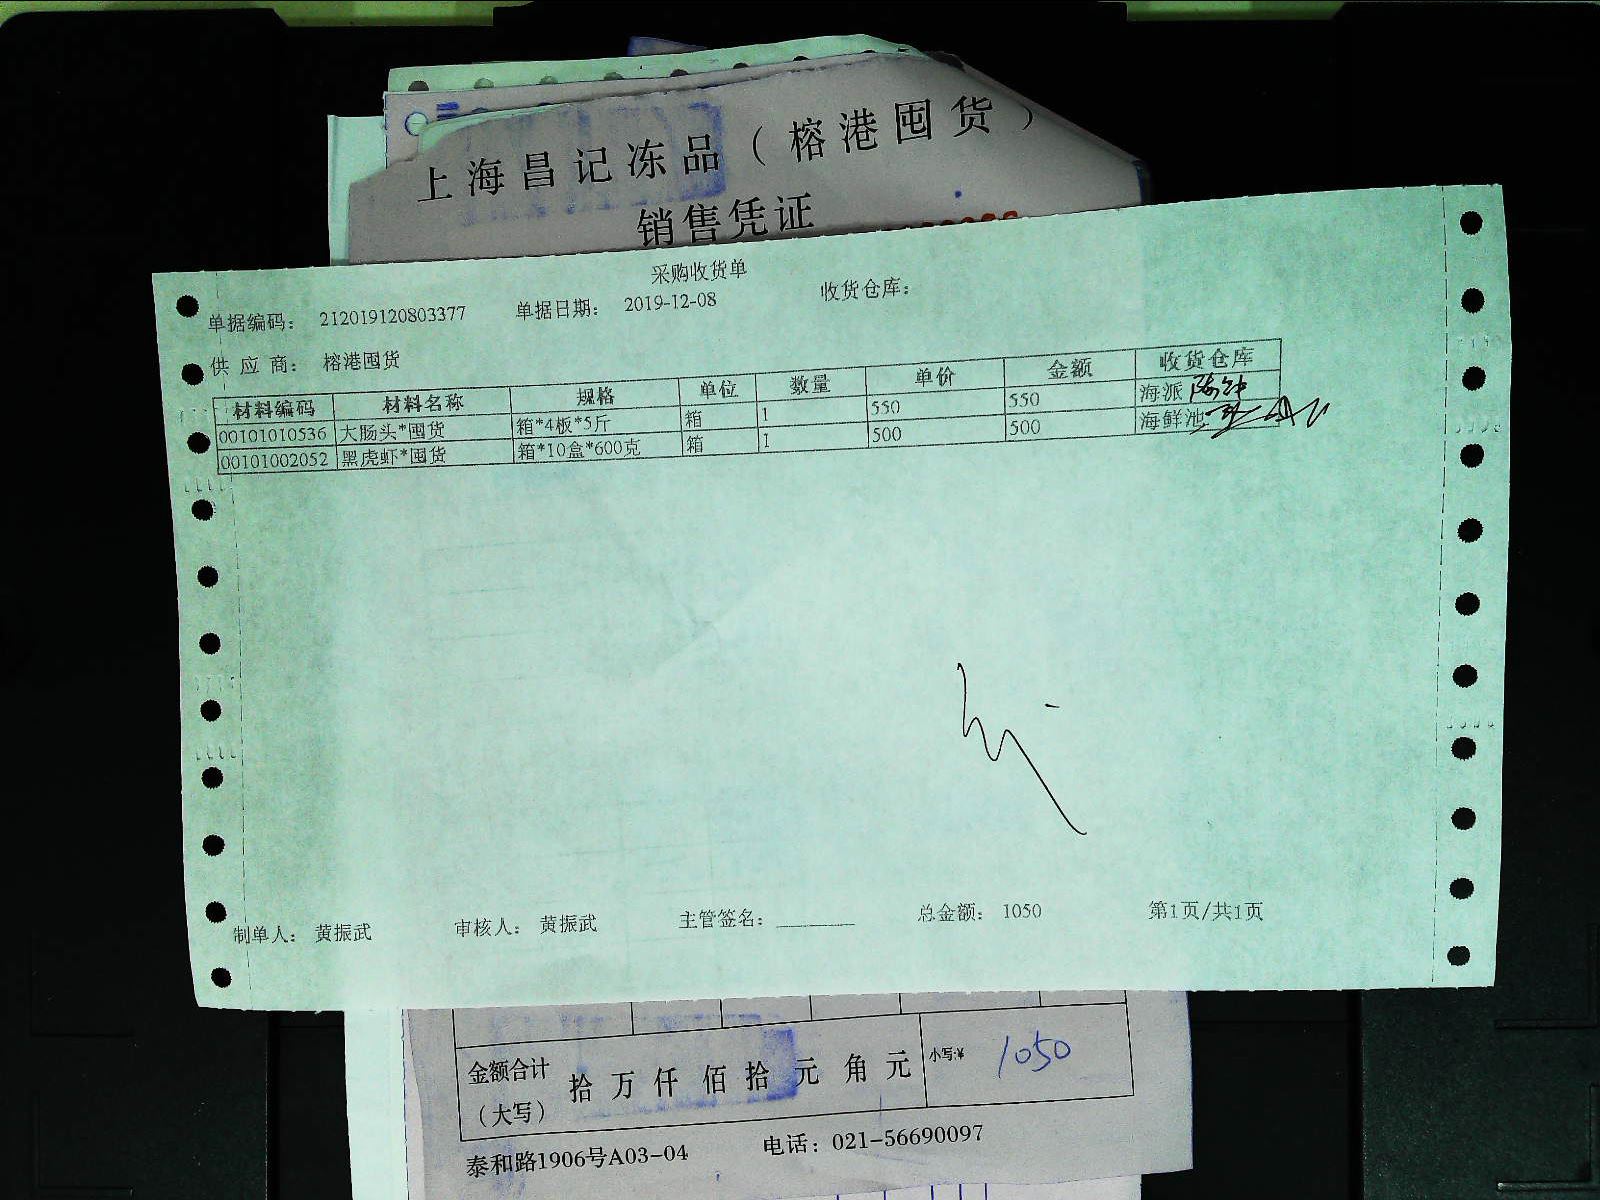 上海昌记冻品（榕港囤货）
销售凭证
采购收货单
单据编码： 212019120803377 单据日期： 2019-12-08 收货仓库：
供 应 商： 榕港囤货
材料编码 材料名称 规格 单位 数量 单价 金额 收货仓库
00101010536 大肠头*囤货 箱*4板*5斤 箱 1 550 550 海派
00101002052 黑虎虾*囤货 箱*10盒*600克 箱 1 500 500 海鲜池
制单人： 黄振武 审核人： 黄振武 主管签名：________ 总金额： 1050 第1页/共1页
金额合计（大写） 拾 万 仟 佰 拾 元 角 元 小写:¥ 1050
泰和路1906号A03-04 电话：021-56690097